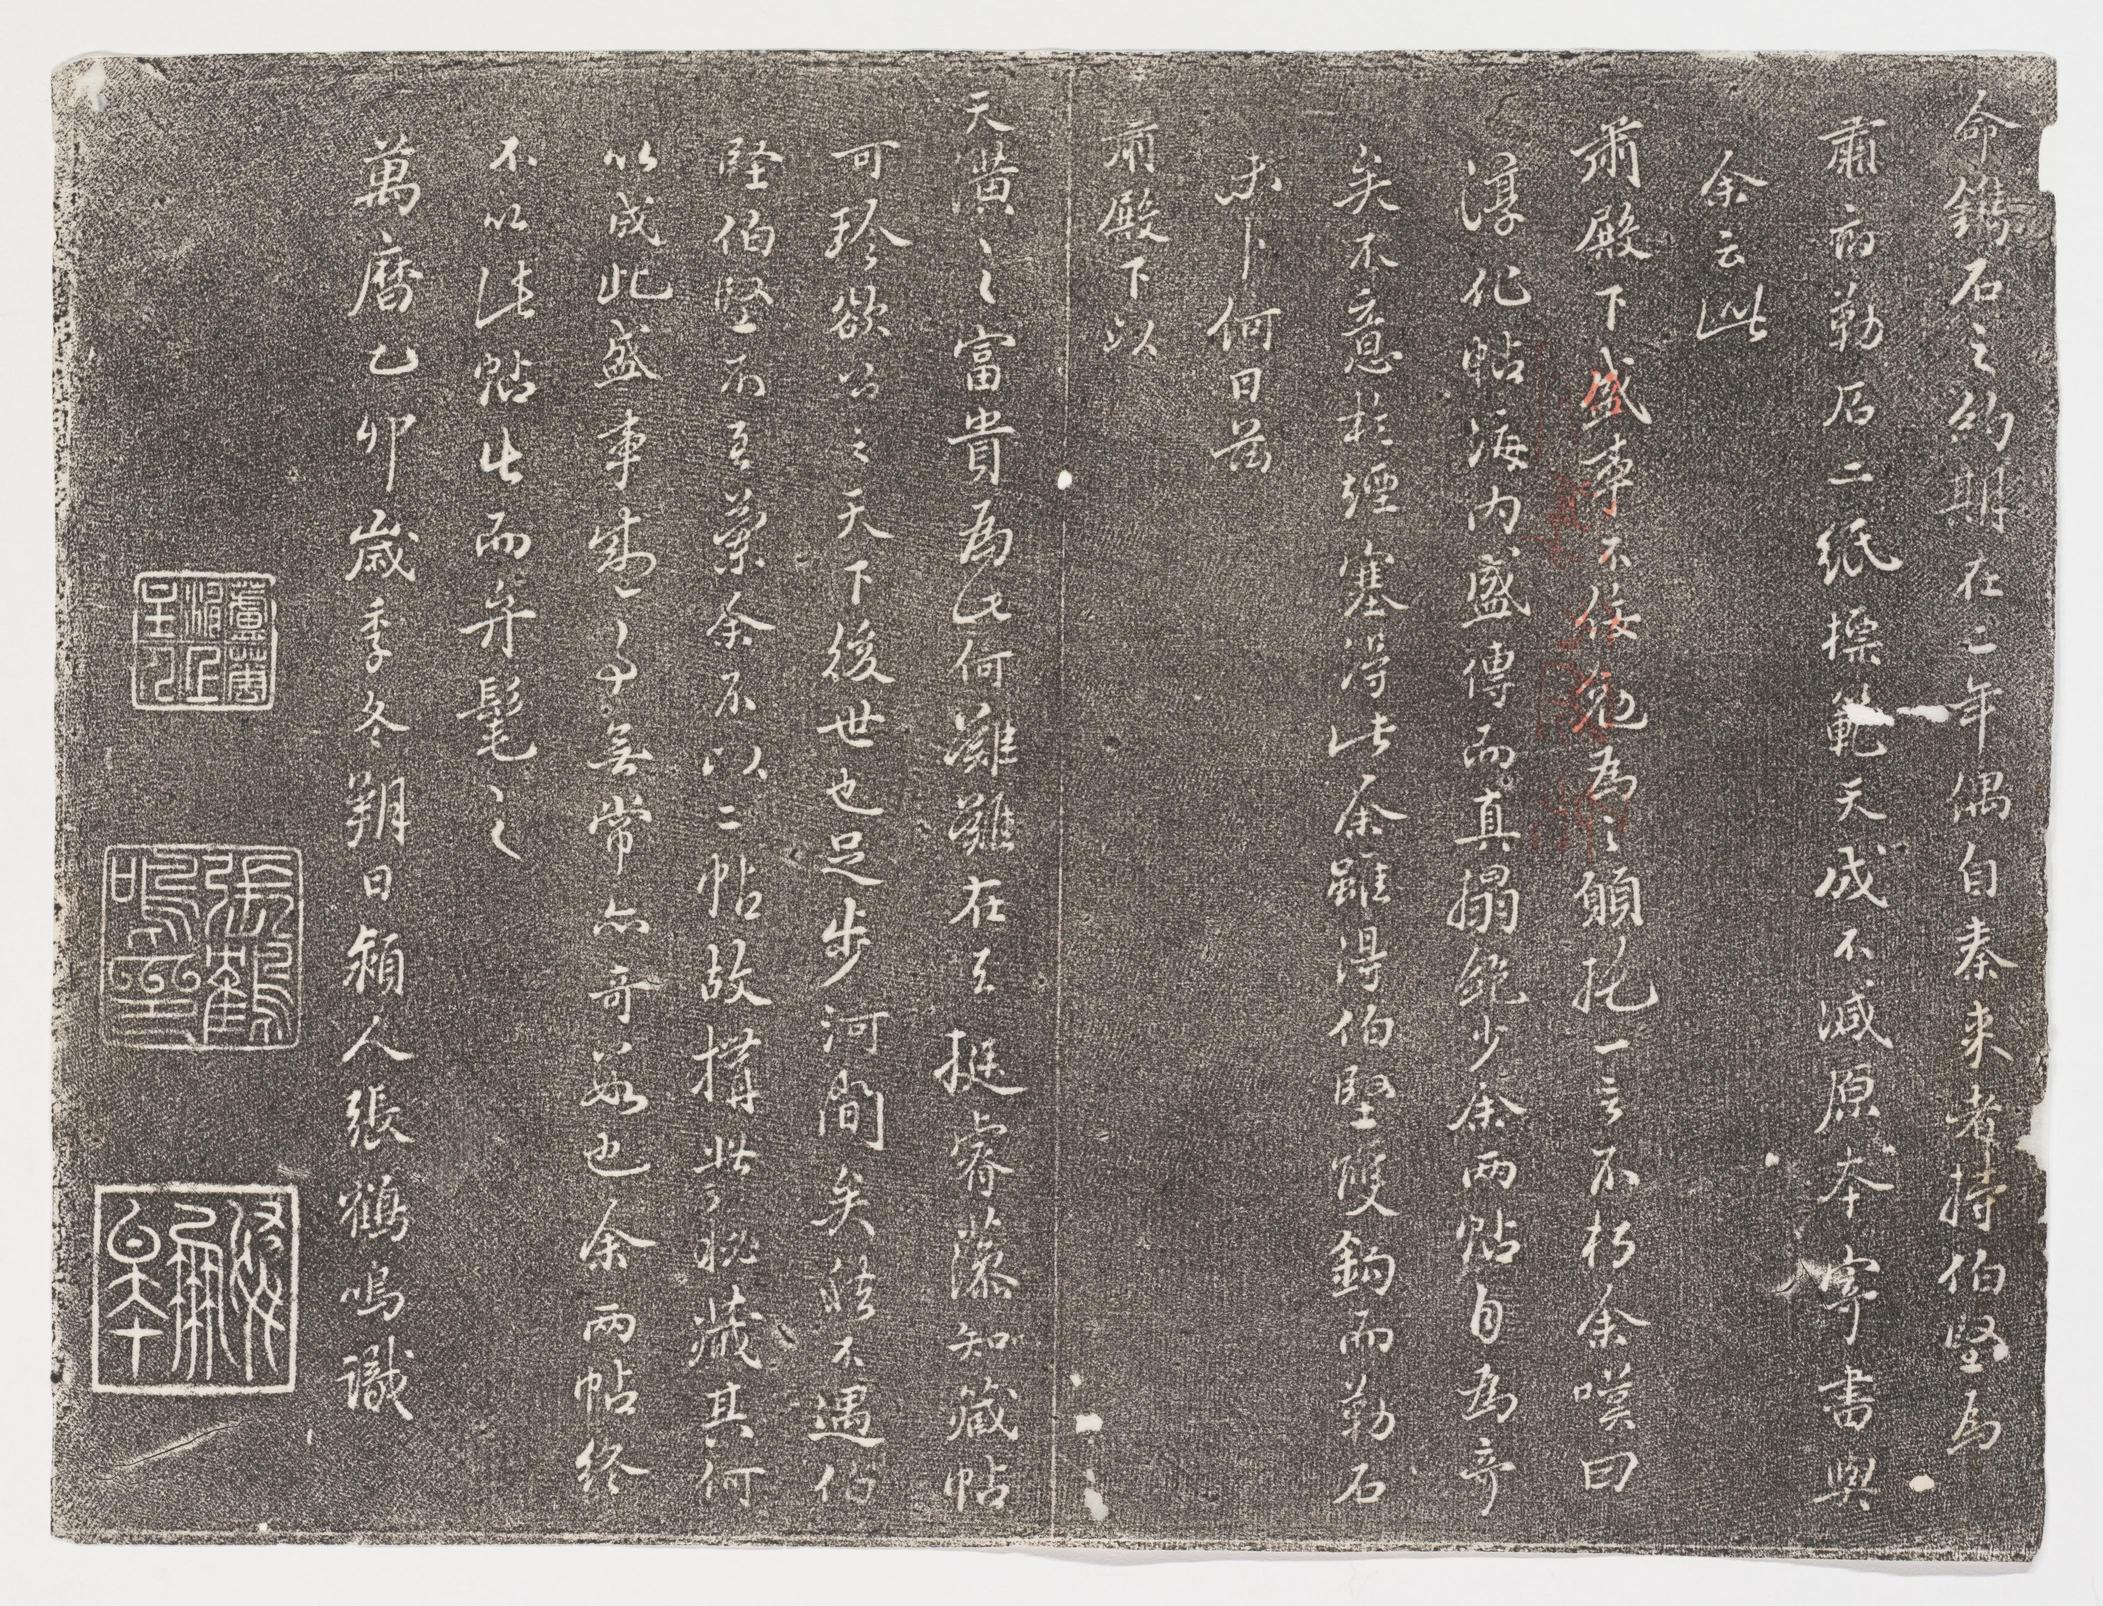 命鐫石之約期在二年偶自秦来者持伯堅為
肅府勒石二紙摽範天成不減原本寄書與
余云此
肅殿下盛事不佞勉為之願扥一言不朽余嘆曰
淳化帖海內盛傳而真搨絶少余兩帖自為竒
矣不意於煙塞淂此余雖淂伯堅雙鈎而勒石
未卜何日茲
肅殿下以
天潢之富貴為此何難難在天挺睿藻知藏帖
可珍欲公之天下後世也足步河間矣然不遇伯
堅伯堅而天葉余不以二帖故搆此秘藏其何
以成此盛事嗟乎無常亦奇数也余兩帖終
不以法帖出而弁髦之
萬曆乙卯歲季冬朔日潁人張鶴鳴識
張鶴鳴印